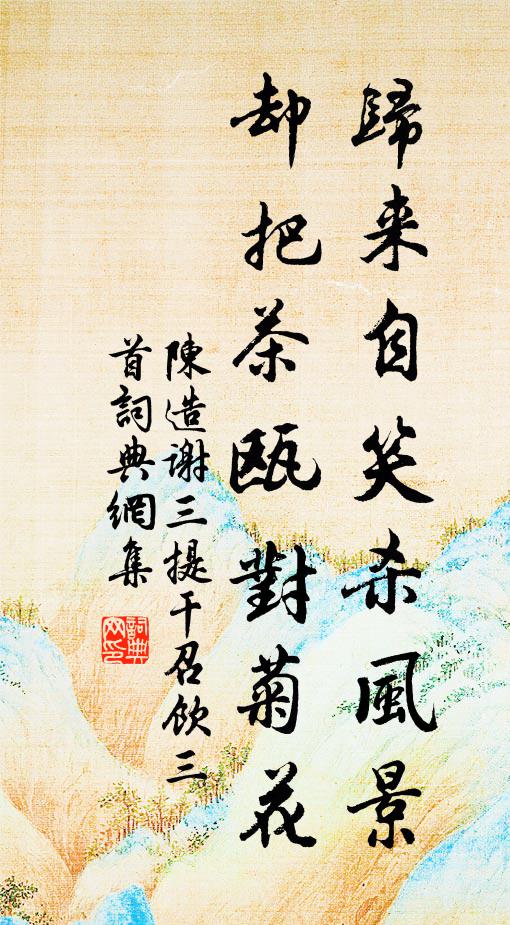 歸来自笑杀風景
却把茶甌對菊花
陳造謝三提干召飲三
首詞典網集
詞典网印